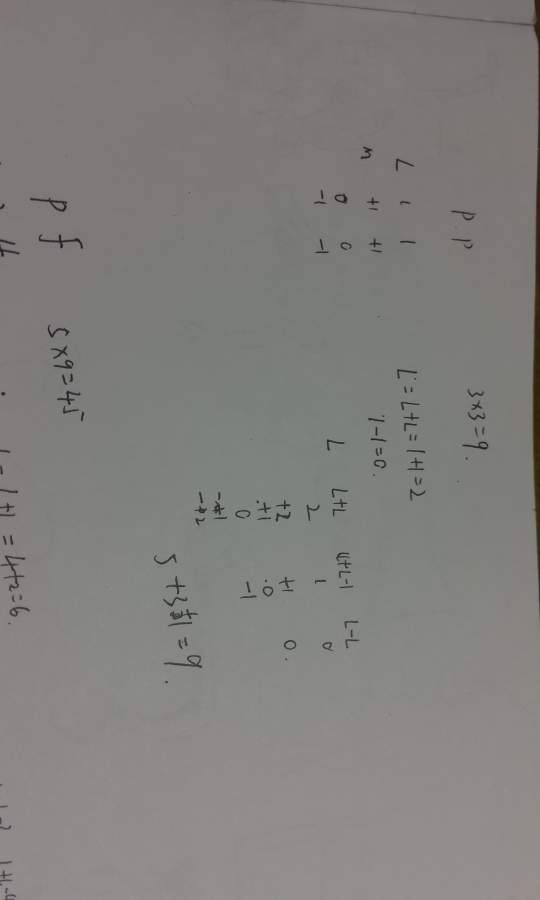 p. p 3x3=9.
L 1 1 L'=L+L=1+1=2
m +1 +1 1-1=0.
0 0
-1 -1
L L+L L+L-1 L-L
2 1 0
+2 +1 0.
+1 .0
0 -1
-1
-2
5+3+1=9.
p f 5x9=45
4 L=L+1=4+2=6.